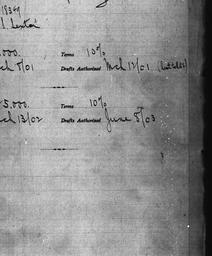 18349
,000. Terms 10%
ch 8/01 Drafts Authorized Mch 12/01
5,000. Terms 10%
ch 13/02 Drafts Authorized June 5/03